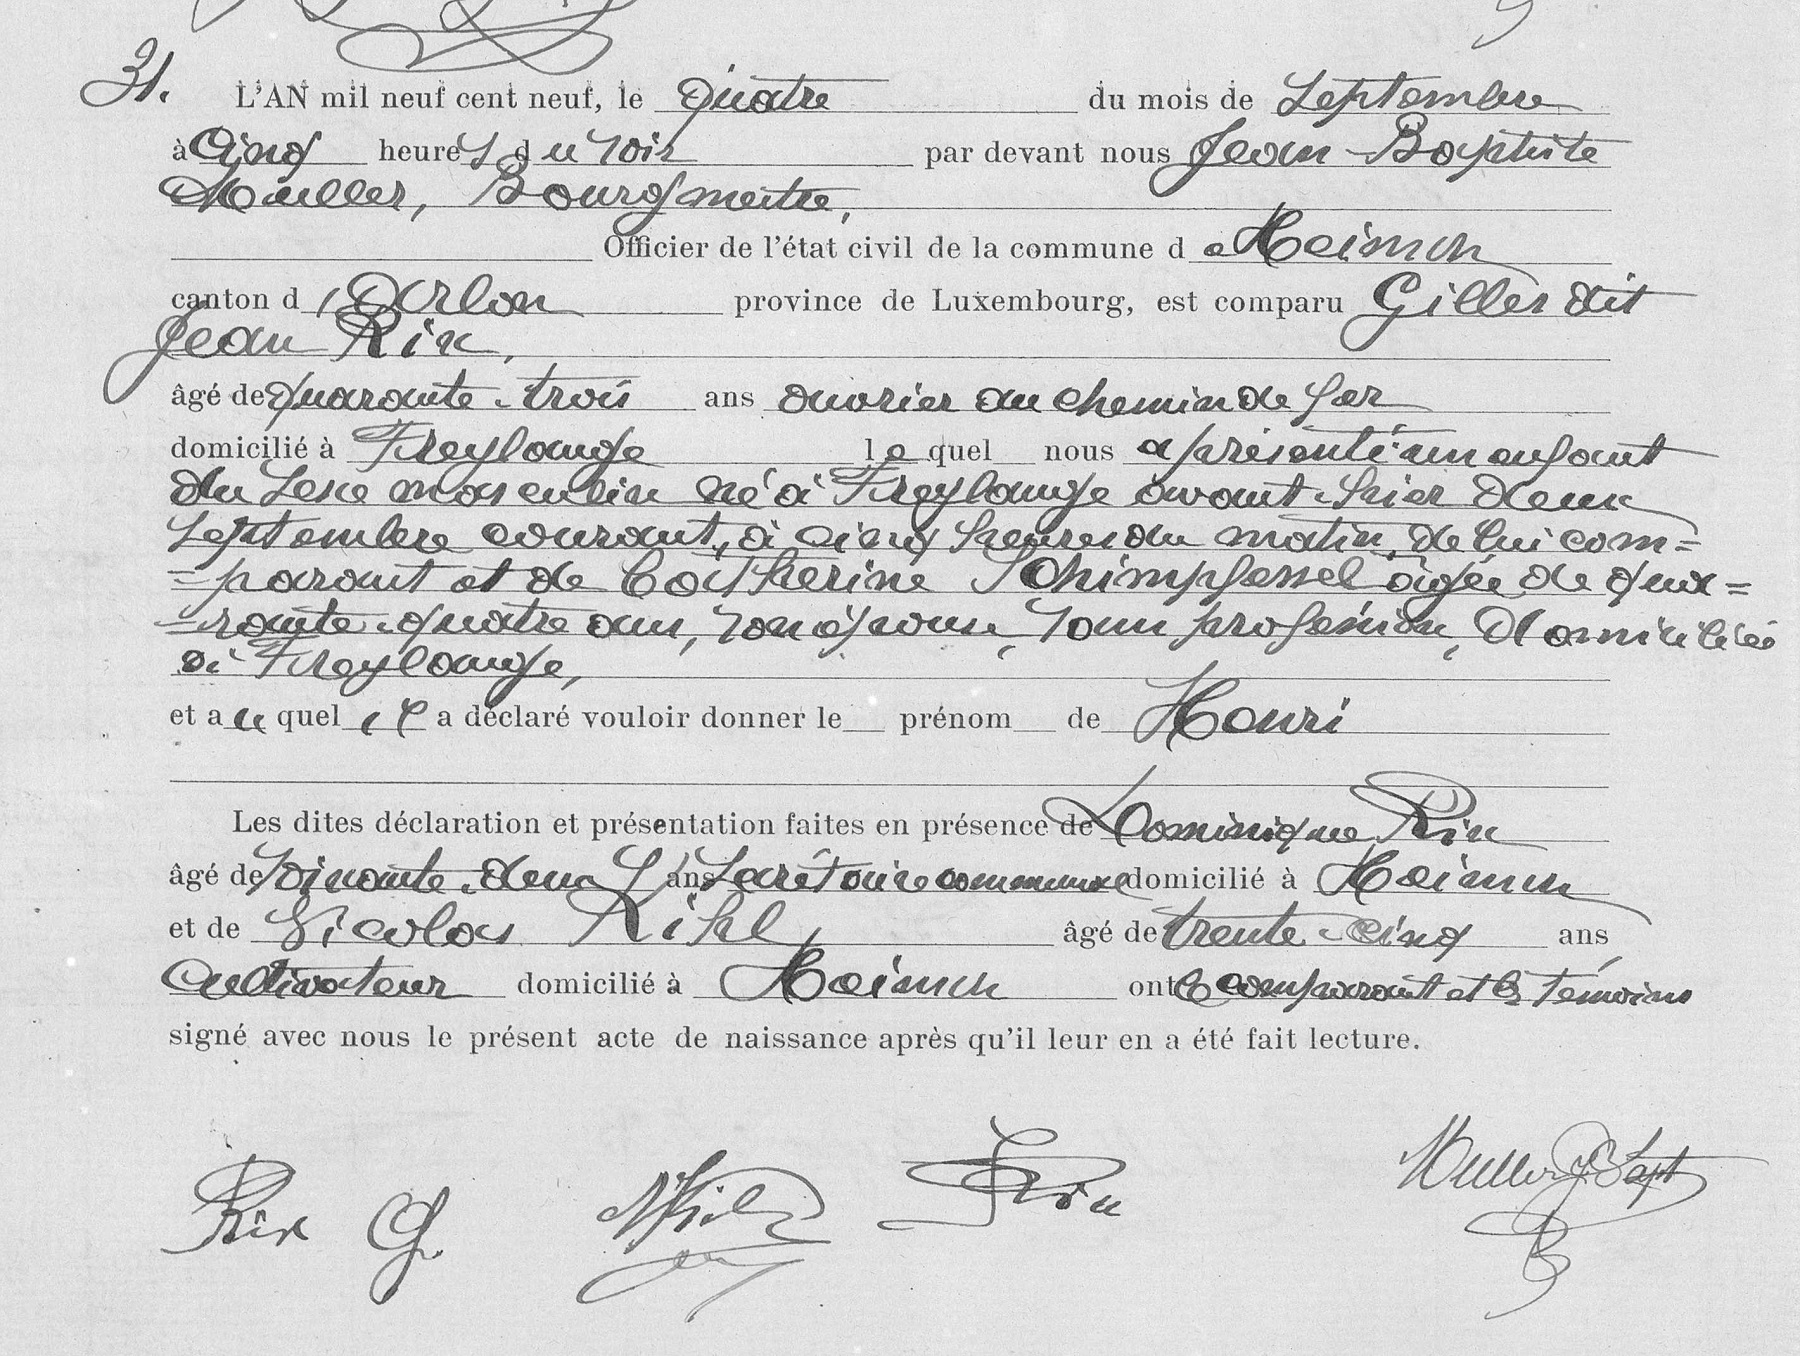 31. L'AN mil neuf cent neuf, le quatre du mois de Septembre
à cinq heures du soir par devant nous Jean-Baptiste
Muller, Bourgmestre,
Officier de l'état civil de la commune de Heinsch
canton d'Arlon province de Luxembourg, est comparu Gilles dit
Jean Rix,
âgé de quarante-trois ans ouvrier au chemin de fer
domicilié à Freylange lequel nous a présenté un enfant
du sexe masculin né à Freylange avant-hier deux
Septembre courant, à cinq heures du matin, de lui com=
=parant et de Catherine Schimpfessel âgée de qua=
=rante-quatre ans, son épouse, sans profession, domiciliée
à Freylange,
et auquel il a déclaré vouloir donner le prénom de Henri
Les dites déclaration et présentation faites en présence de Dominique Rix
âgé de soixante-deux ans Secrétaire communal domicilié à Heinsch
et de Nicolas ans,
âgé de trente-cinq
cultivateur domicilié à Heinsch ont le comparant et les témoins
signé avec nous le présent acte de naissance après qu'il leur en a été fait lecture.
Rix G. Rix Muller J Bapt